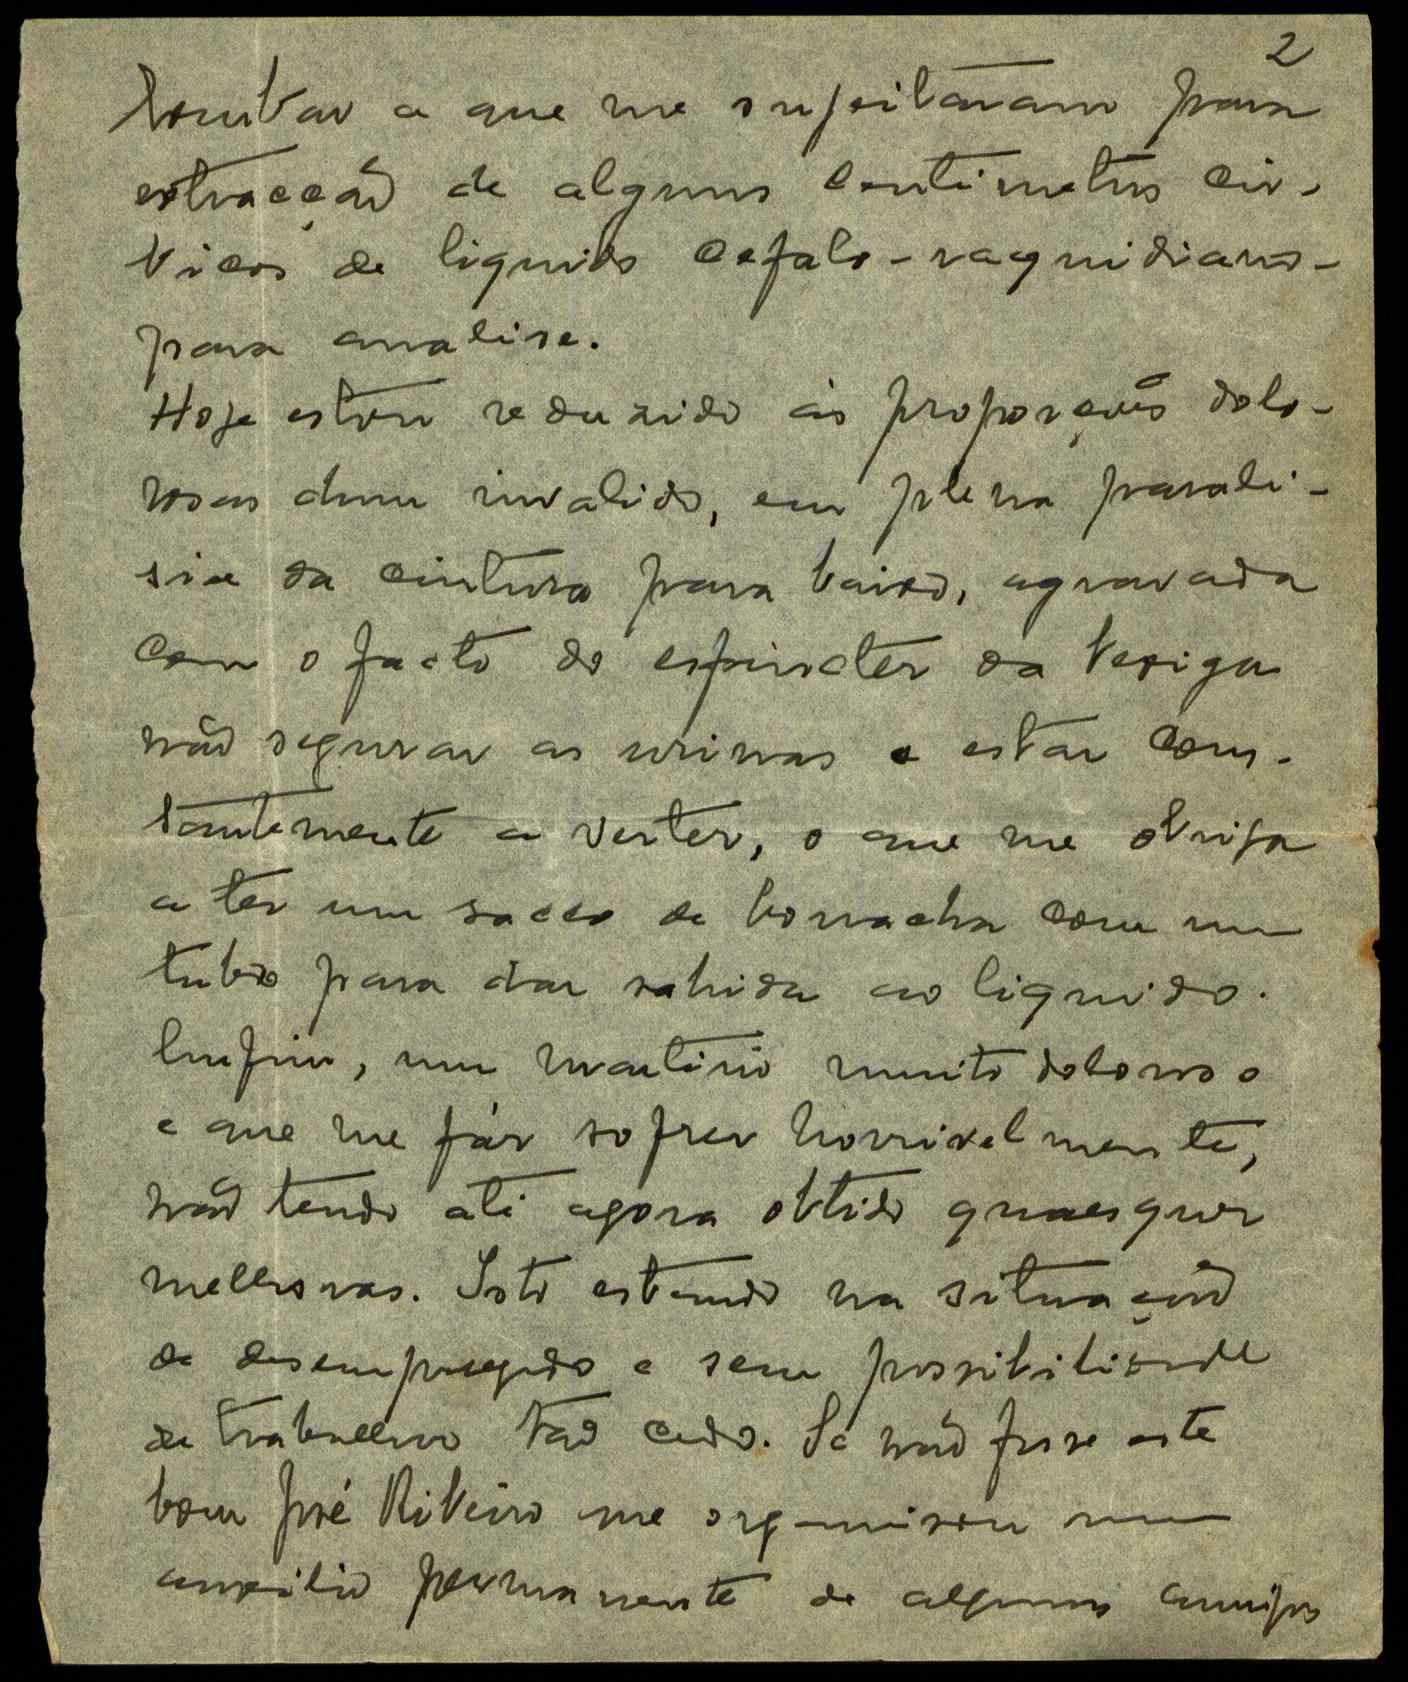 2
lombar a que me sujeitaram para
extracção de alguns centimetros cu-
bicos de liquido cefalo-raquidiano-
para analise.
Hoje estou reduzido ás proporções dolo-
rosas dum invalido, em plena parali-
sia da cintura para baixo, agravada
com o facto do espincter da bexiga
não segurar as urinas e estar cons-
tantemente a verter, o que me obriga
a ter um sacco de borracha com um
tubo para dar sahida ao liquido.
Emfim, um martirio muito doloroso
e que me fáz sofrer horrivelmente,
não tendo até agora obtido quaesquer
melhoras. Isto estando na situação
de desempregado e sem possibilidade
de trabalho tão cedo. Se não fosse este
bom José Ribeiro me organisou um
auxilio permanente de alguns amigos